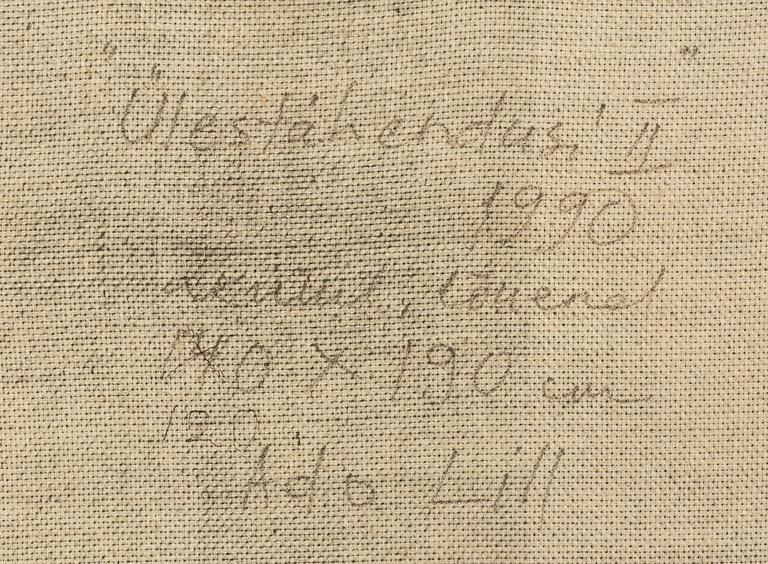 "Ülestähendusi II"
1990
akrüül, lõuend
140 x 190 cm
120
Ado Lill